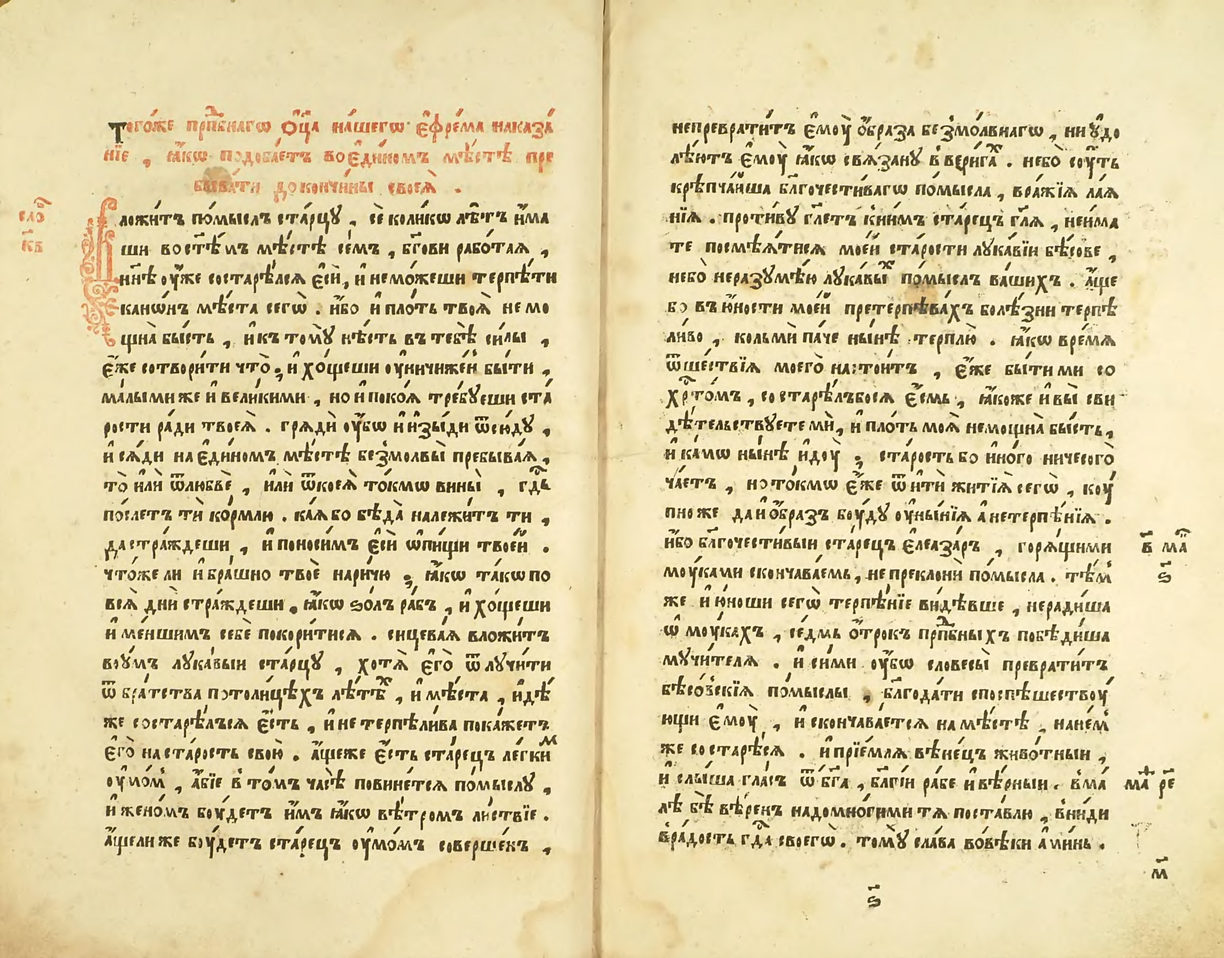 Тогѡ́же прⷣпбнагѡ ѻ҆ц҃а на́шегѡ є҆фре́ма наказа́
нїе , ꙗ҆́кѡ подоба́етъ воє҆ди́номъ мѣ́стѣ пре
быва́ти доконч́ины своеѧ̀ .
сло́
к҃в
Вложи́тъ по́мыслъ ста́рцꙋ , се́ коли́кѡ лѣ́тъ и҆́ма
ши восвѣ́мъ мѣ́стѣ се́мъ , бг҃ови рабо́таѧ ,
нн҃ѣ оу҆́же состарѣ́лсѧ є҆сѝ , и҆немо́жеши терпѣ́ти
канѡ́нъ мѣ́ста сегѡ̀ . и҆́бо и҆пло́ть твоѧ̀ не мо
щна бы́сть , и҆къ томꙋ̀ нѣ́сть въ тебѣ̀ си́лы ,
є҆́же сотвори́ти что̀ , и҆ хо́щеши оу҆ничиже́нъ бы́ти ,
ма́лыми же и҆вели́кими , но и҆поко́ѧ тре́бꙋеши ста́
рости ра́ди твоеѧ̀ . грѧдѝ оу҆́бѡ и҆ и҆зы́ди ѿсю́дꙋ ,
и҆ сѧ́ди на є҆ди́номъ мѣ́стѣ безмо́лвы̀ пребыва́ѧ ,
то̀ и҆лѝ ѿлюбвѐ , и҆лѝ ѿкоеѧ̀ то́кмѡ вины̀ , гдⷭ҇ь
по́слетъ тѝ ко́рмлю . ка́ѧ бо бѣда̀ належи́тъ ти ,
да стра́ждеши , и҆ поноси́мъ є҆сѝ ѡ҆пи́щи твое́й .
что́же ли и҆бра́шно твоѐ нарич́ю , ꙗ҆́кѡ та́кѡ по
всѧ̀ дни̑ стра́ждеши , ꙗ҆́кѡ ѕо́лъ ра́бъ , и҆ хо́щеши
и҆ ме́ншимъ себѐ покори́тисѧ . сицева́ѧ вложи́тъ
воу́мъ лꙋка́выи ста́рцꙋ , хотѧ̀ є҆го̀ ѿлꙋчи́ти
ѿ бра́тства потоли́цѣхъ лѣ́тѣⷯ , и҆ мѣ́ста , и҆дѣ́
же состарѣ́лъсѧ є҆́сть , и҆ не терпѣли́ва пока́жетъ
є҆го̀ на ста́рость свою̀ . а҆́щеже є҆́сть ста́рецъ ле́гкиⷨ
оу҆мо́м , а҆́бїе в то́мъ часѣ̀ пови́нетсѧ по́мыслꙋ ,
и҆ жено́мъ бꙋ́детъ и҆́мъ ꙗ҆́кѡ вѣ́тромъ ли́ствїе .
а҆́щели же бꙋ́детъ ста́рецъ оу҆мо́мъ соверше́нъ ,
непревратѝтъ є҆моу̀ ѻ҆́браза безмо́лвнагѡ , ни оу҆до
лѣ́ютъ є҆моу̀ ꙗ҆́кѡ свѧ́занꙋ в вери́гаⷯ . не́бо соу́ть
крѣпча́йша бл҃гочести́вагѡ по́мысла , вра́жїѧ лаѧ́
нїѧ . проти́вꙋ гл҃етъ кни́мъ ста́рецъ гл҃ѧ , неи́ма
те посмѣѧ́тисѧ мое́й ста́рости лꙋка́вїи бѣ́сове ,
не́бо неразꙋмѣ́ю лꙋка́выⷯ по́мыслъ ва́шихъ . а҆́ще
бо въ ю҆́ности мое́й претерпѣва́хъ болѣ́зни терпѣ
ли́во , ко́льми па́че ны́нѣ терплю̀ . ꙗ҆́кѡ вре́мѧ
ѿше́ствїѧ моего̀ настои́тъ , є҆́же бы́ти ми со
хрⷭ҇то́мъ , состарѣ́лъбосѧ є҆́смь , ꙗ҆́коже и҆ вы̀ сви
дѣ́тельствꙋете мѝ , и҆ пло́ть моѧ̀ немощна̀ бы́сть ,
и҆ ка́мѡ ны́нѣ и҆доу̀ ; ста́рость бо и҆но́го ничесо́го
ча́етъ , но то́кмѡ є҆́же ѿити житїѧ̀ сегѡ̀ , коу́
пно же да и҆ ѻ҆́бразъ боу́дꙋ оу҆ны́нїѧ а҆ нетерпѣ́нїѧ .
и҆́бо бл҃гочести́выи ста́рецъ є҆леаза́ръ , горѧ́щими
в҃ ма
ѕ҃
моу́ками сконча́ваемь , не преклонѝ по́мысла . тѣ́мⸯ
же и҆ ю҆́ноши сегѡ̀ терпѣ́нїе ви́дѣвше , нера́диша
ѡ҆ моу́кахъ , се́дмь ѻ҆́трокъ прⷣпбныхъ побѣди́ша
мꙋчи́телѧ . и҆ си́ми оу҆́бѡ словесы̀ преврати́тъ
бѣсо́вскїѧ по́мыслы , бл҃года́ти споспѣ́шествоу
ющи є҆моу̀ , и҆ сконча́ваетсѧ на мѣ́стѣ , нане́мⸯ
же состарѣ́сѧ . и҆ прїе́млѧ вѣне́цъ живо́тныи ,
и҆ слы́ша гла́съ ѿ бг҃а , бл҃гі́и ра́бе и҆ вѣ́рныи . в ма́
ма рв҃
лѣ бѣ̀ вѣ́ренъ надомно́гими тѧ поста́влю , вни́ди
вра́дость гдⷭ҇а своегѡ̀ . томꙋ̀ сла́ва вовѣ́ки а҆ми́нь .
м҃
ѕ҃